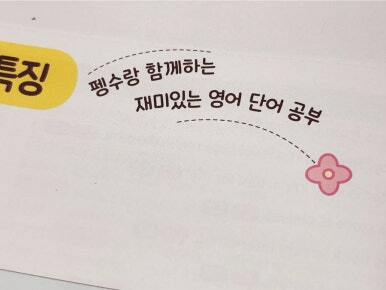 특징
펭수랑 함께하는
재미있는 영어 단어 공부